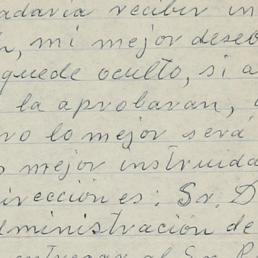 adaría recibir in
, mi mejor deseo
quede oculto, si a
la aprobaran,
ro lo mejor será
mejor instruida
irecciones: Sr. D
dministración de
entregar al Sr. R